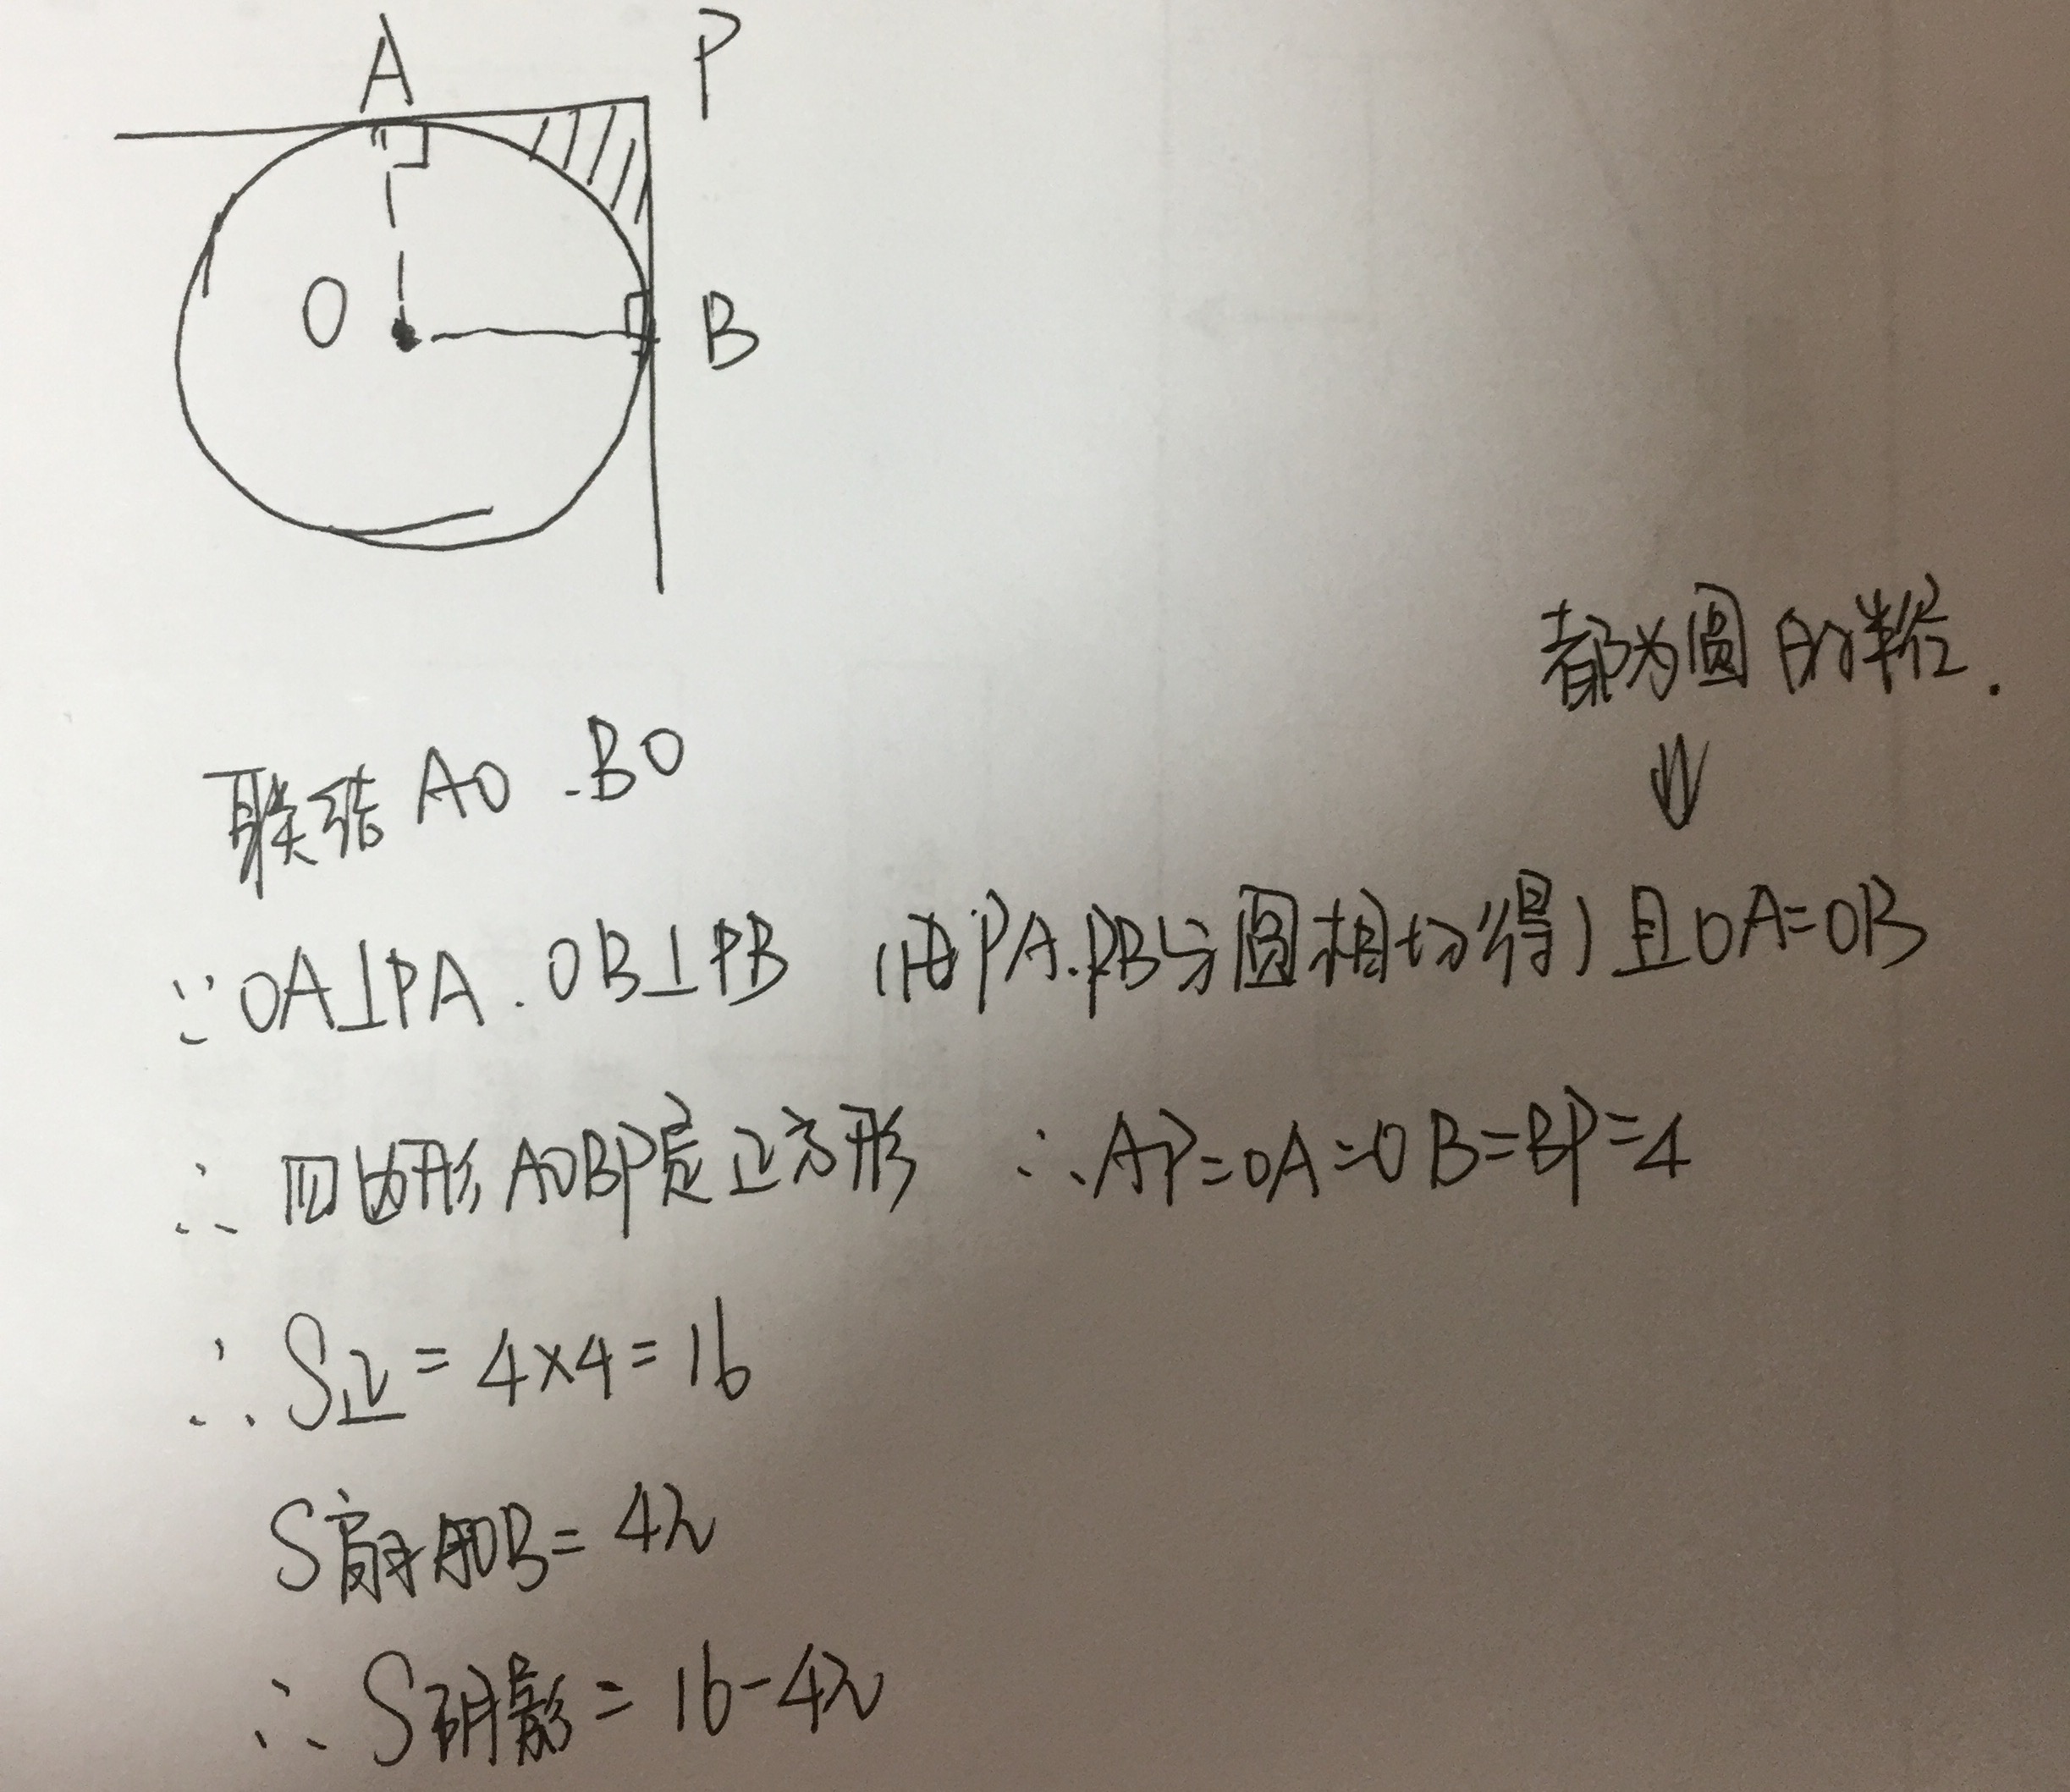 A P
O B
都为圆的半径.
⇓
联结AO.BO
∵OA⊥PA.OB⊥PB (由PA.PB与圆相切得)且OA=OB
∴四边形AOBP是正方形 ∴AP=OA=OB=BP=4
∴S正=4×4=16
S扇形AOB=4π
∴S阴影=16-4π